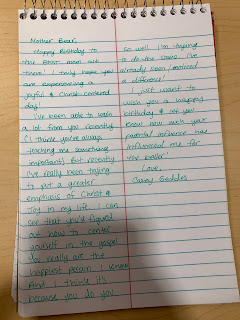 Mother Bear,
Happy Birthday to
the Best mom out
there! I truly hope you
are experiencing a
joyful & Christ centered
day!
I've been able to learn
a lot from you recently
(I think you're always
teaching me something
important) But recently
I've really been trying
to put a greater
emphasis of Christ &
Joy in my life. I can
see that you'd figured
out how to center
yourself in the gospel
You really are the
happiest person I know
And I think it's
because you do you
so well. I'm trying
to do the same. I've
already been/noticed
a difference!
I just want to
wish you a happy
birthday & let you
know how much your
parental influence has
influenced me for
the better.
Love,
Casey Geddes